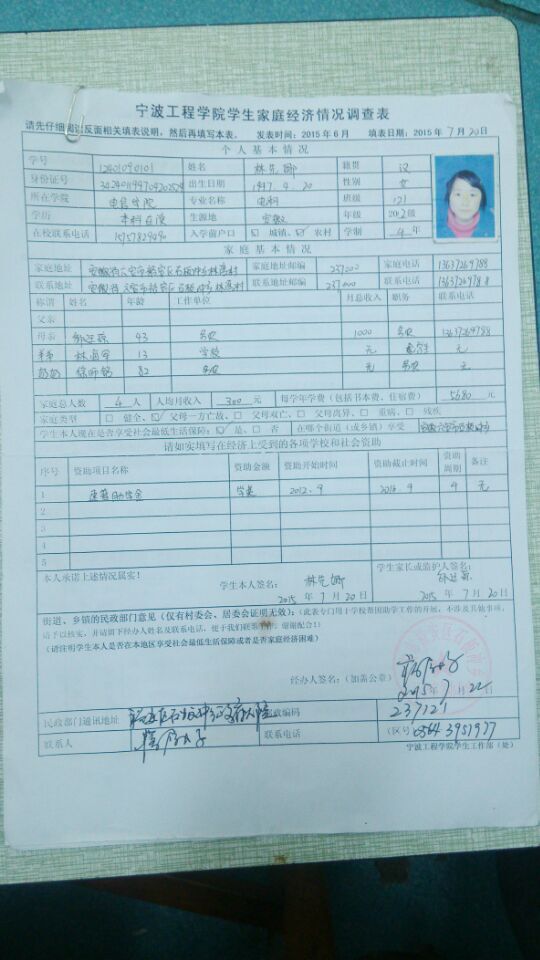 宁波工程学院学生家庭经济情况调查表
请先仔细阅读反面相关填表说明，然后再填写本表。 发表时间：2015年6月 填表日期：2015年7月20日
个人基本情况
学号 12401090101 姓名 林先娜 籍贯 汉
身份证号 出生日期 1997.4.20 性别 女
所在学院 电信学院 专业名称 电科 班级 121
学历 本科在读 生源地 安徽 年级 2012级
在校联系电话 入学前户口 城镇、 农村 学制 4年
家庭基本情况
家庭地址 安徽省六安市裕安区石板冲乡 村 家庭地址邮编 237000 家庭电话 13637269788
联系地址 安徽省六安市裕安区石板冲乡 村 联系地址邮编 237000 联系电话
称谓 姓名 年龄 工作单位 月总收入 职务 联系电话
父亲
母亲 43 务农 1000 务农 13637269788
13 学校 元 元
奶奶 82 务农 元 务农 元
家庭总人数 4 人 人均月收入 300 元 每学年学费（包括书本费、住宿费） 5680 元
家庭类型 □ 健全、☑ 父母一方亡故、□ 父母双亡、□ 父母离异、□ 重病、□ 残疾
学生本人现在是否享受社会最低生活保障：☑ 是、□ 否 在哪个街道（或乡镇）享受
请如实填写在经济上受到的各项学校和社会资助
序号 资助项目名称 资助金额 资助开始时间 资助截止时间 资助周期 备注
1 助学金 2012.9 9 无
2
3
4
5
本人承诺上述情况属实！ 学生家长或监护人签名：
学生本人签名： 林先娜
2015年7月20日 2015年7月20日
街道、乡镇的民政部门意见（仅有村委会、居委会证明无效）：（此表专门用于学校帮困助学工作的开展，不涉及其他事项，
请予以核实，并请留下经办人姓名及联系电话，便于我们联系工作，谢谢配合！）
（请注明学生本人是否在本地区享受社会最低生活保障或者是否家庭经济困难）
经办人签名：（加盖公章）
2015年7月22日
民政部门通讯地址 邮政编码 237121
联系人 联系电话 （区号）0564 3951977
宁波工程学院学生工作部（处）